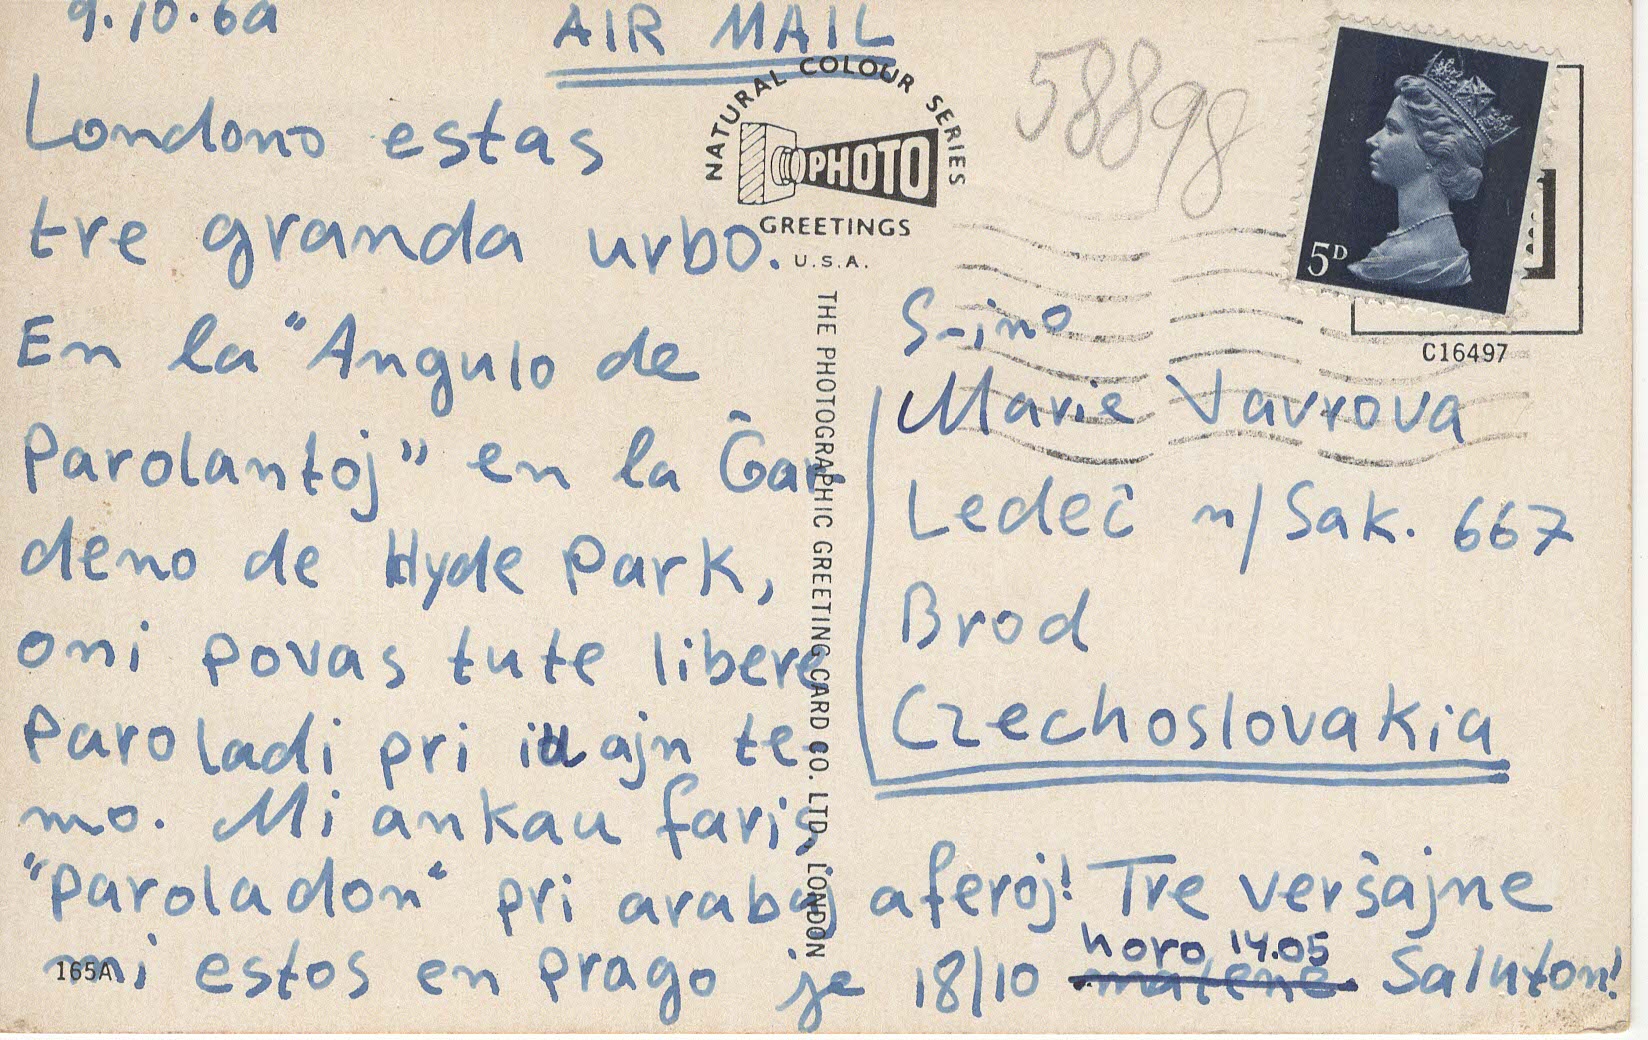 9.10.69
AIR MAIL
Londono estas
tre granda urbo.
En la "Angulo de
Parolantoj" en la Ĝar
deno de Hyde Park,
oni povas tute libere
Paroladi pri iu ajn te-
mo. Mi ankau faris
"Paroladon" pri arabaj aferoj! Tre verŝajne
mi estos en Prago je 18/10 horo 14.05 Saluton!
matene
165A
NATURAL COLOUR SERIES
PHOTO
GREETINGS
U.S.A.
THE PHOTOGRAPHIC GREETING CARD CO. LTD. LONDON
58898
5D
C16497
S-ino
Marie Vavrova
Ledeč n/Sak. 667
Brod
Czechoslovakia